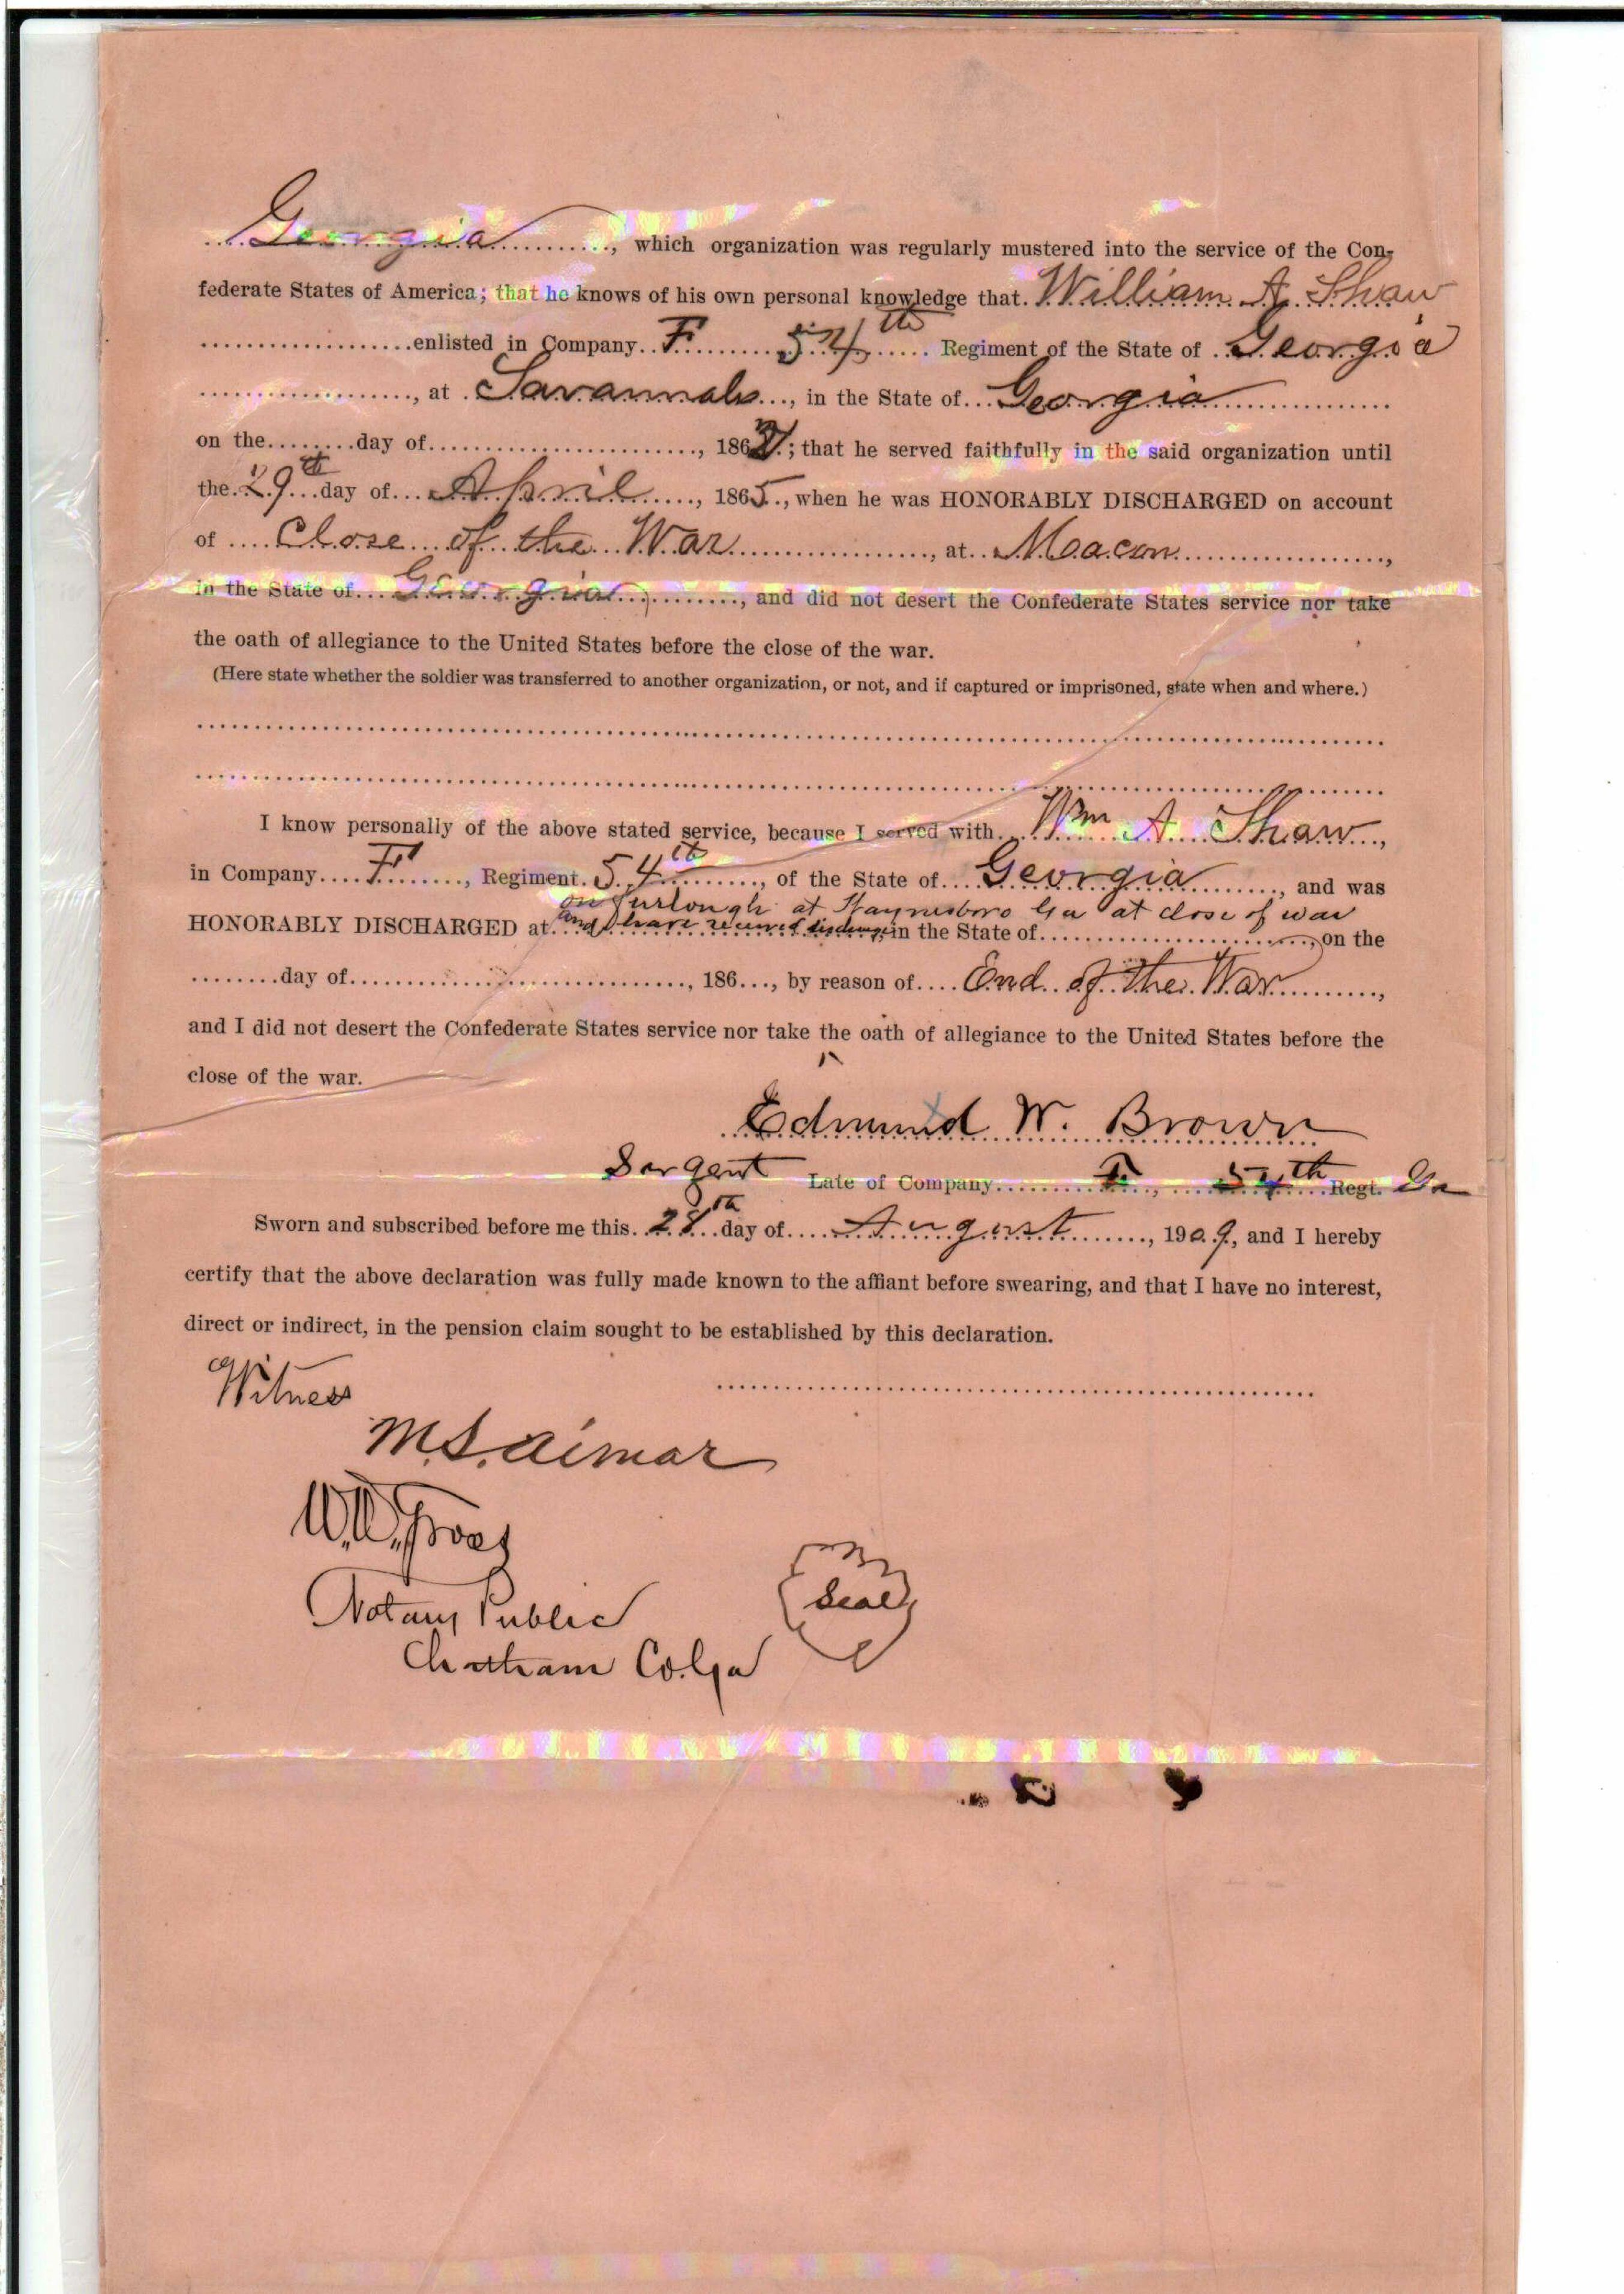 Georgia, which organization was regularly mustered into the service of the Con-
federate States of America; that he knows of his own personal knowledge that William A. Shaw
enlisted in Company F 54th Regiment of the State of Georgia
, at Savannah, in the State of Georgia
on the day of , 186; that he served faithfully in the said organization until
the 29th day of April, 1865, when he was HONORABLY DISCHARGED on account
of Close of the War, at Macon,
in the State of Georgia, and did not desert the Confederate States service nor take
the oath of allegiance to the United States before the close of the war.
(Here state whether the soldier was transferred to another organization, or not, and if captured or imprisoned, state when and where.)
I know personally of the above stated service, because I served with Wm A Shaw,
in Company F, Regiment 54th, of the State of Georgia, and was
on furlough at Waynesboro Ga at close of war
HONORABLY DISCHARGED at and have received discharge in the State of , on the
day of , 186 , by reason of End of the War,
and I did not desert the Confederate States service nor take the oath of allegiance to the United States before the
close of the war.
Edmund W. Brown
Sargent Late of Company F, 54th Regt. Ga
Sworn and subscribed before me this 28th day of August, 1909, and I hereby
certify that the above declaration was fully made known to the affiant before swearing, and that I have no interest,
direct or indirect, in the pension claim sought to be established by this declaration.
Witness
M.S. Aimar
W.W.
Notary Public
Seal
Chatham Co. Ga